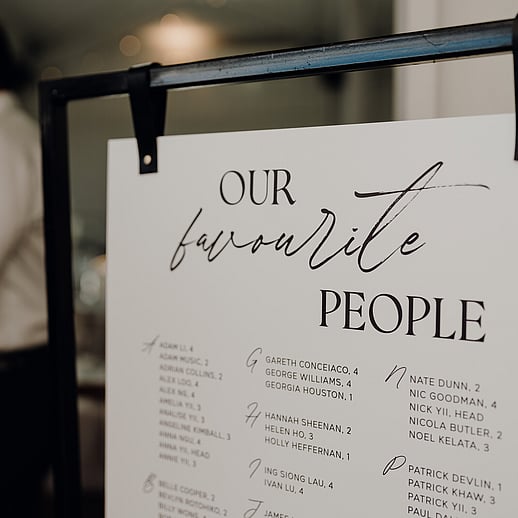 OUR
favourite
PEOPLE
A
ADAM LI, 4
ADAM MUSIC, 2
ADRIAN COLLINS, 2
ALEX LOO, 4
ALEX NG, 4
AMELIA YII, 3
ANALISE YII, 3
ANGELINE KIMBALL, 3
ANNA NGU, 4
ANNA YII, HEAD
ANNIE YII, 3
B
BELLE COOPER, 2
BEVLYN ROTOHIKO, 2
BILLY WONG,
G
GARETH CONCEIACO, 4
GEORGE WILLIAMS, 4
GEORGIA HOUSTON, 1
H
HANNAH SHEENAN, 2
HELEN HO, 3
HOLLY HEFFERNAN, 1
I
ING SIONG LAU, 4
IVAN LU, 4
J
JAMES
N
NATE DUNN, 2
NIC GOODMAN, 4
NICK YII, HEAD
NICOLA BUTLER, 2
NOEL KELATA, 3
P
PATRICK DEVLIN, 1
PATRICK KHAW, 3
PATRICK YII, 3
PAUL